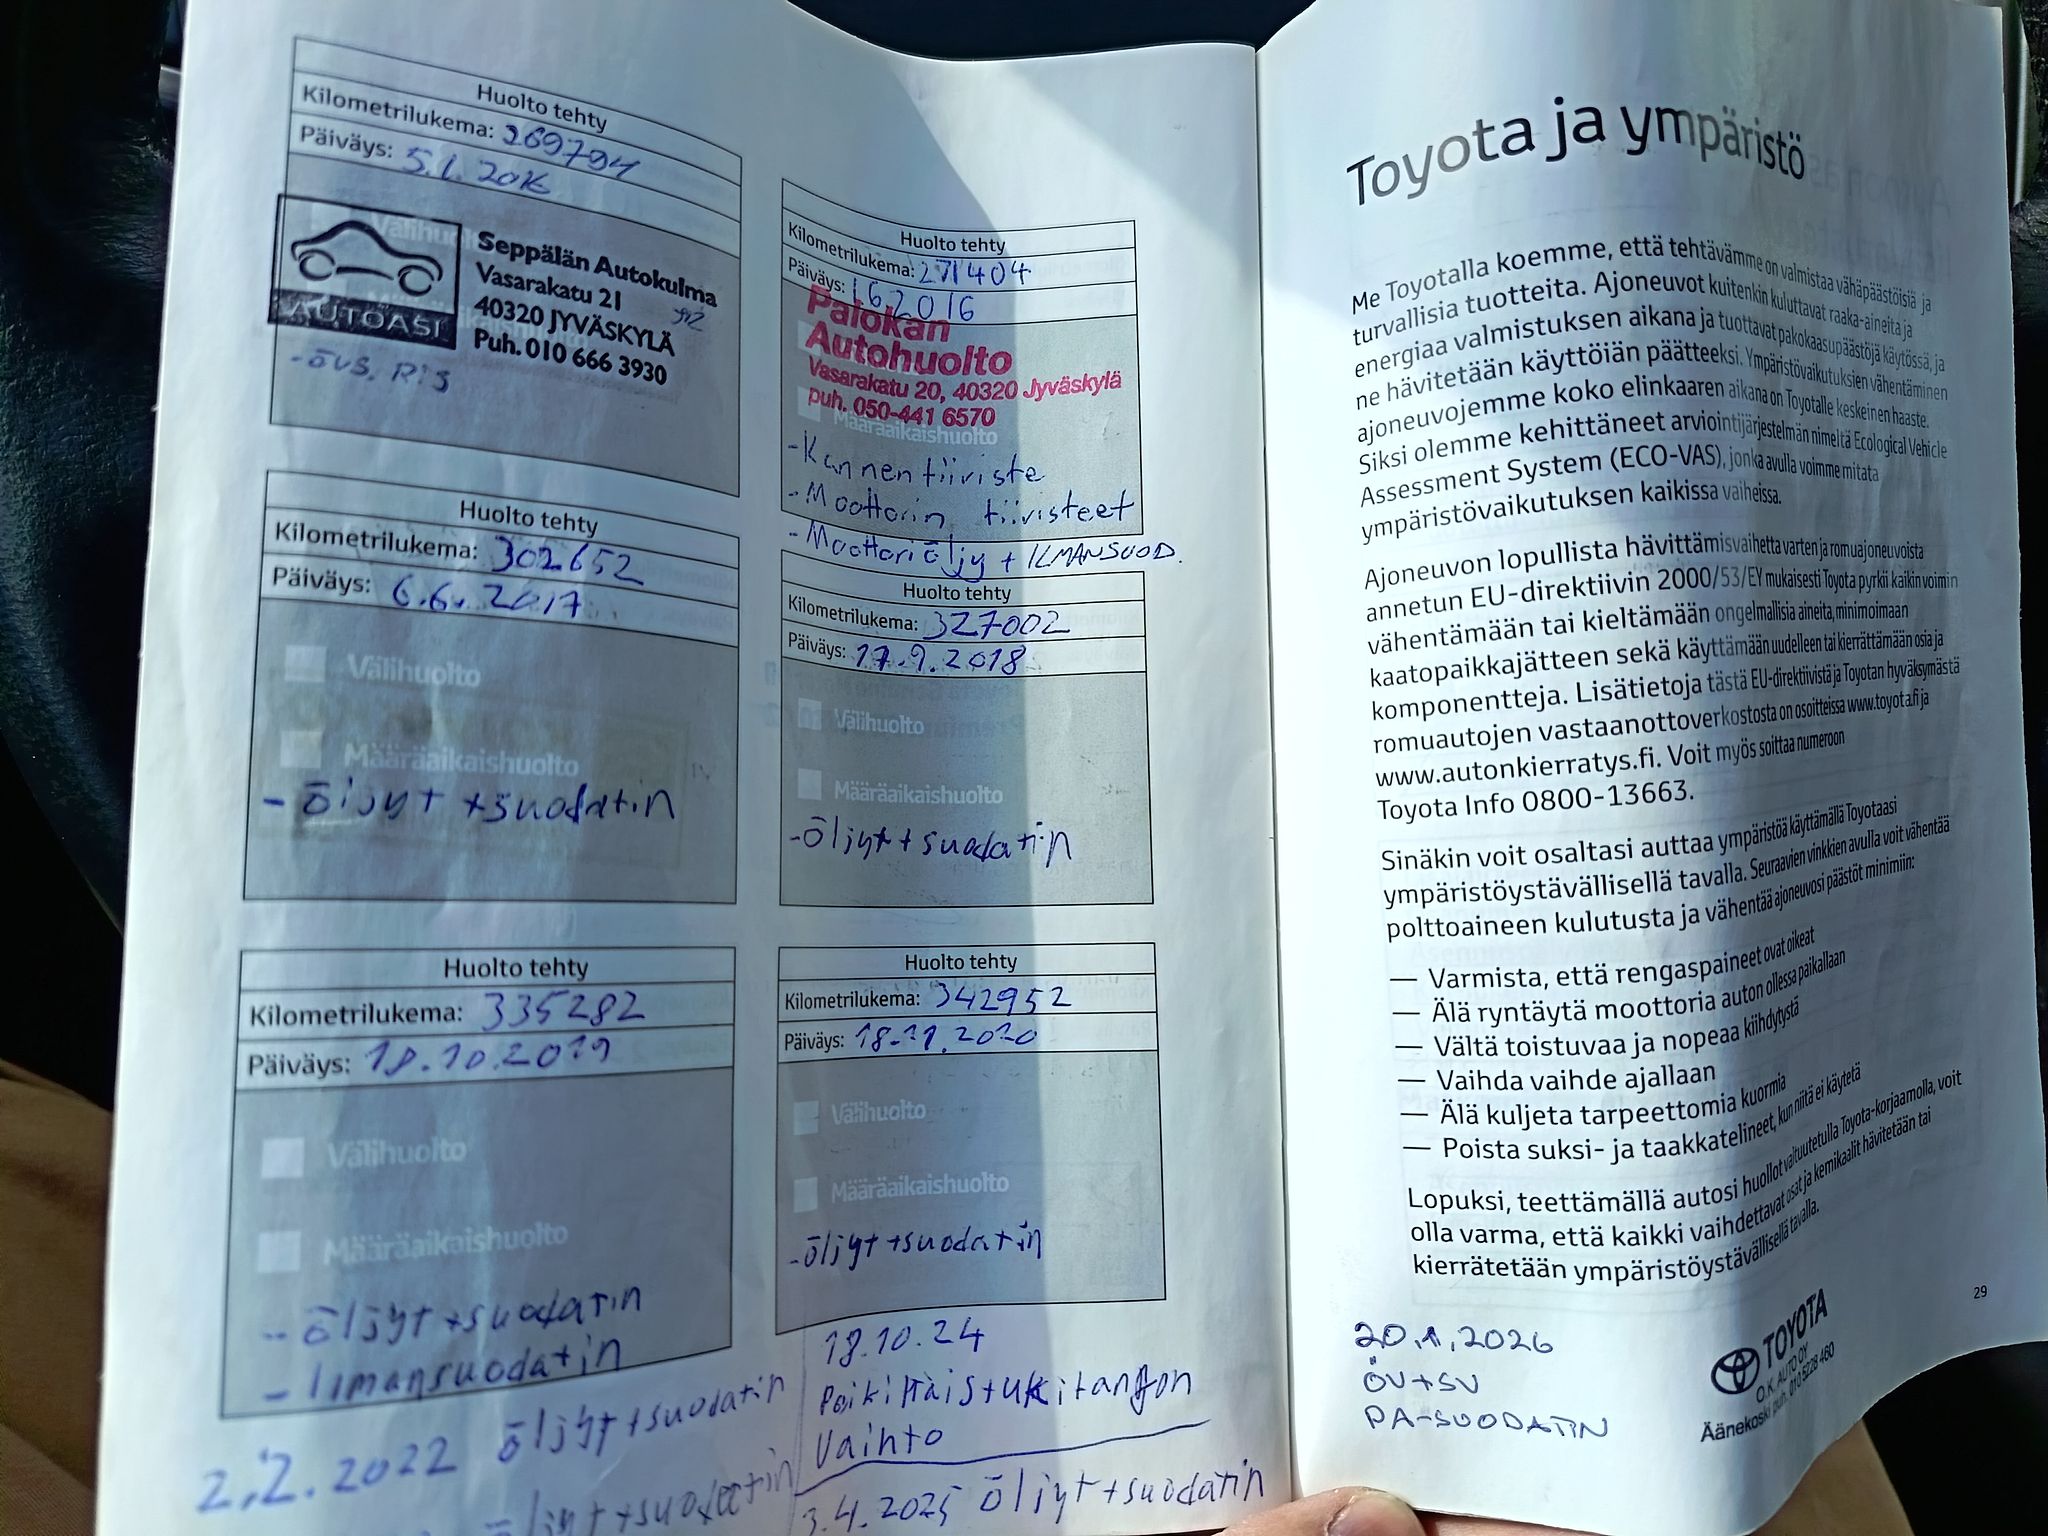 Huolto tehty
Kilometrilukema: 269794
Päiväys: 5.1.2016
AUTOASI
Seppälän Autokulma
Vasarakatu 21
40320 JYVÄSKYLÄ
Puh. 010 666 3930
- övs, Ris
Huolto tehty
Kilometrilukema: 271404
Päiväys: 1.6.2016
Palokan
Autohuolto
Vasarakatu 20, 40320 Jyväskylä
puh. 050-441 6570
Määräaikaishuolto
- Kannentiiviste
- Moottorin tiivisteet
- Moottoriöljy + ILMANSUOD.
Huolto tehty
Kilometrilukema: 302652
Päiväys: 6.6.2017
Välihuolto
Määräaikaishuolto
- öljyt + suodatin
Huolto tehty
Kilometrilukema: 327002
Päiväys: 17.9.2018
Välihuolto
Määräaikaishuolto
- öljyt + suodatin
Huolto tehty
Kilometrilukema: 335282
Päiväys: 18.10.2019
Välihuolto
Määräaikaishuolto
- öljyt + suodatin
- Ilmansuodatin
Huolto tehty
Kilometrilukema: 342952
Päiväys: 18.11.2020
Välihuolto
Määräaikaishuolto
- öljyt + suodatin
2.2.2022 öljyt + suodatin
öljyt + suodatin
18.10.24
Poikittaistukitangon
Vaihto
3.4.2025 öljyt + suodatin
Toyota ja ympäristö
Me Toyotalla koemme, että tehtävämme on valmistaa vähäpäästöisiä ja
turvallisia tuotteita. Ajoneuvot kuitenkin kuluttavat raaka-aineita ja
energiaa valmistuksen aikana ja tuottavat pakokaasupäästöjä käytössä, ja
ne hävitetään käyttöiän päätteeksi. Ympäristövaikutuksien vähentäminen
ajoneuvojemme koko elinkaaren aikana on Toyotalle keskeinen haaste.
Siksi olemme kehittäneet arviointijärjestelmän nimeltä Ecological Vehicle
Assessment System (ECO-VAS), jonka avulla voimme mitata
ympäristövaikutuksen kaikissa vaiheissa.
Ajoneuvon lopullista hävittämisvaihetta varten ja romuajoneuvoista
annetun EU-direktiivin 2000/53/EY mukaisesti Toyota pyrkii kaikin voimin
vähentämään tai kieltämään ongelmallisia aineita, minimoimaan
kaatopaikkajätteen sekä käyttämään uudelleen tai kierrättämään osia ja
komponentteja. Lisätietoja tästä EU-direktiivistä ja Toyotan hyväksymästä
romuautojen vastaanottoverkostosta on osoitteissa www.toyota.fi ja
www.autonkierratys.fi. Voit myös soittaa numeroon
Toyota Info 0800-13663.
Sinäkin voit osaltasi auttaa ympäristöä käyttämällä Toyotaasi
ympäristöystävällisellä tavalla. Seuraavien vinkkien avulla voit vähentää
polttoaineen kulutusta ja vähentää ajoneuvosi päästöt minimiin:
— Varmista, että rengaspaineet ovat oikeat
— Älä ryntäytä moottoria auton ollessa paikallaan
— Vältä toistuvaa ja nopeaa kiihdytystä
— Vaihda vaihde ajallaan
— Älä kuljeta tarpeettomia kuormia
— Poista suksi- ja taakkatelineet, kun niitä ei käytetä
Lopuksi, teettämällä autosi huollot valtuutetulla Toyota-korjaamolla, voit
olla varma, että kaikki vaihdettavat osat ja kemikaalit hävitetään tai
kierrätetään ympäristöystävällisellä tavalla.
29
20.1.2026
ÖV+SV
PA-SUODATIN
TOYOTA
O.K. AUTO OY
Äänekoski puh. 010 5228 460